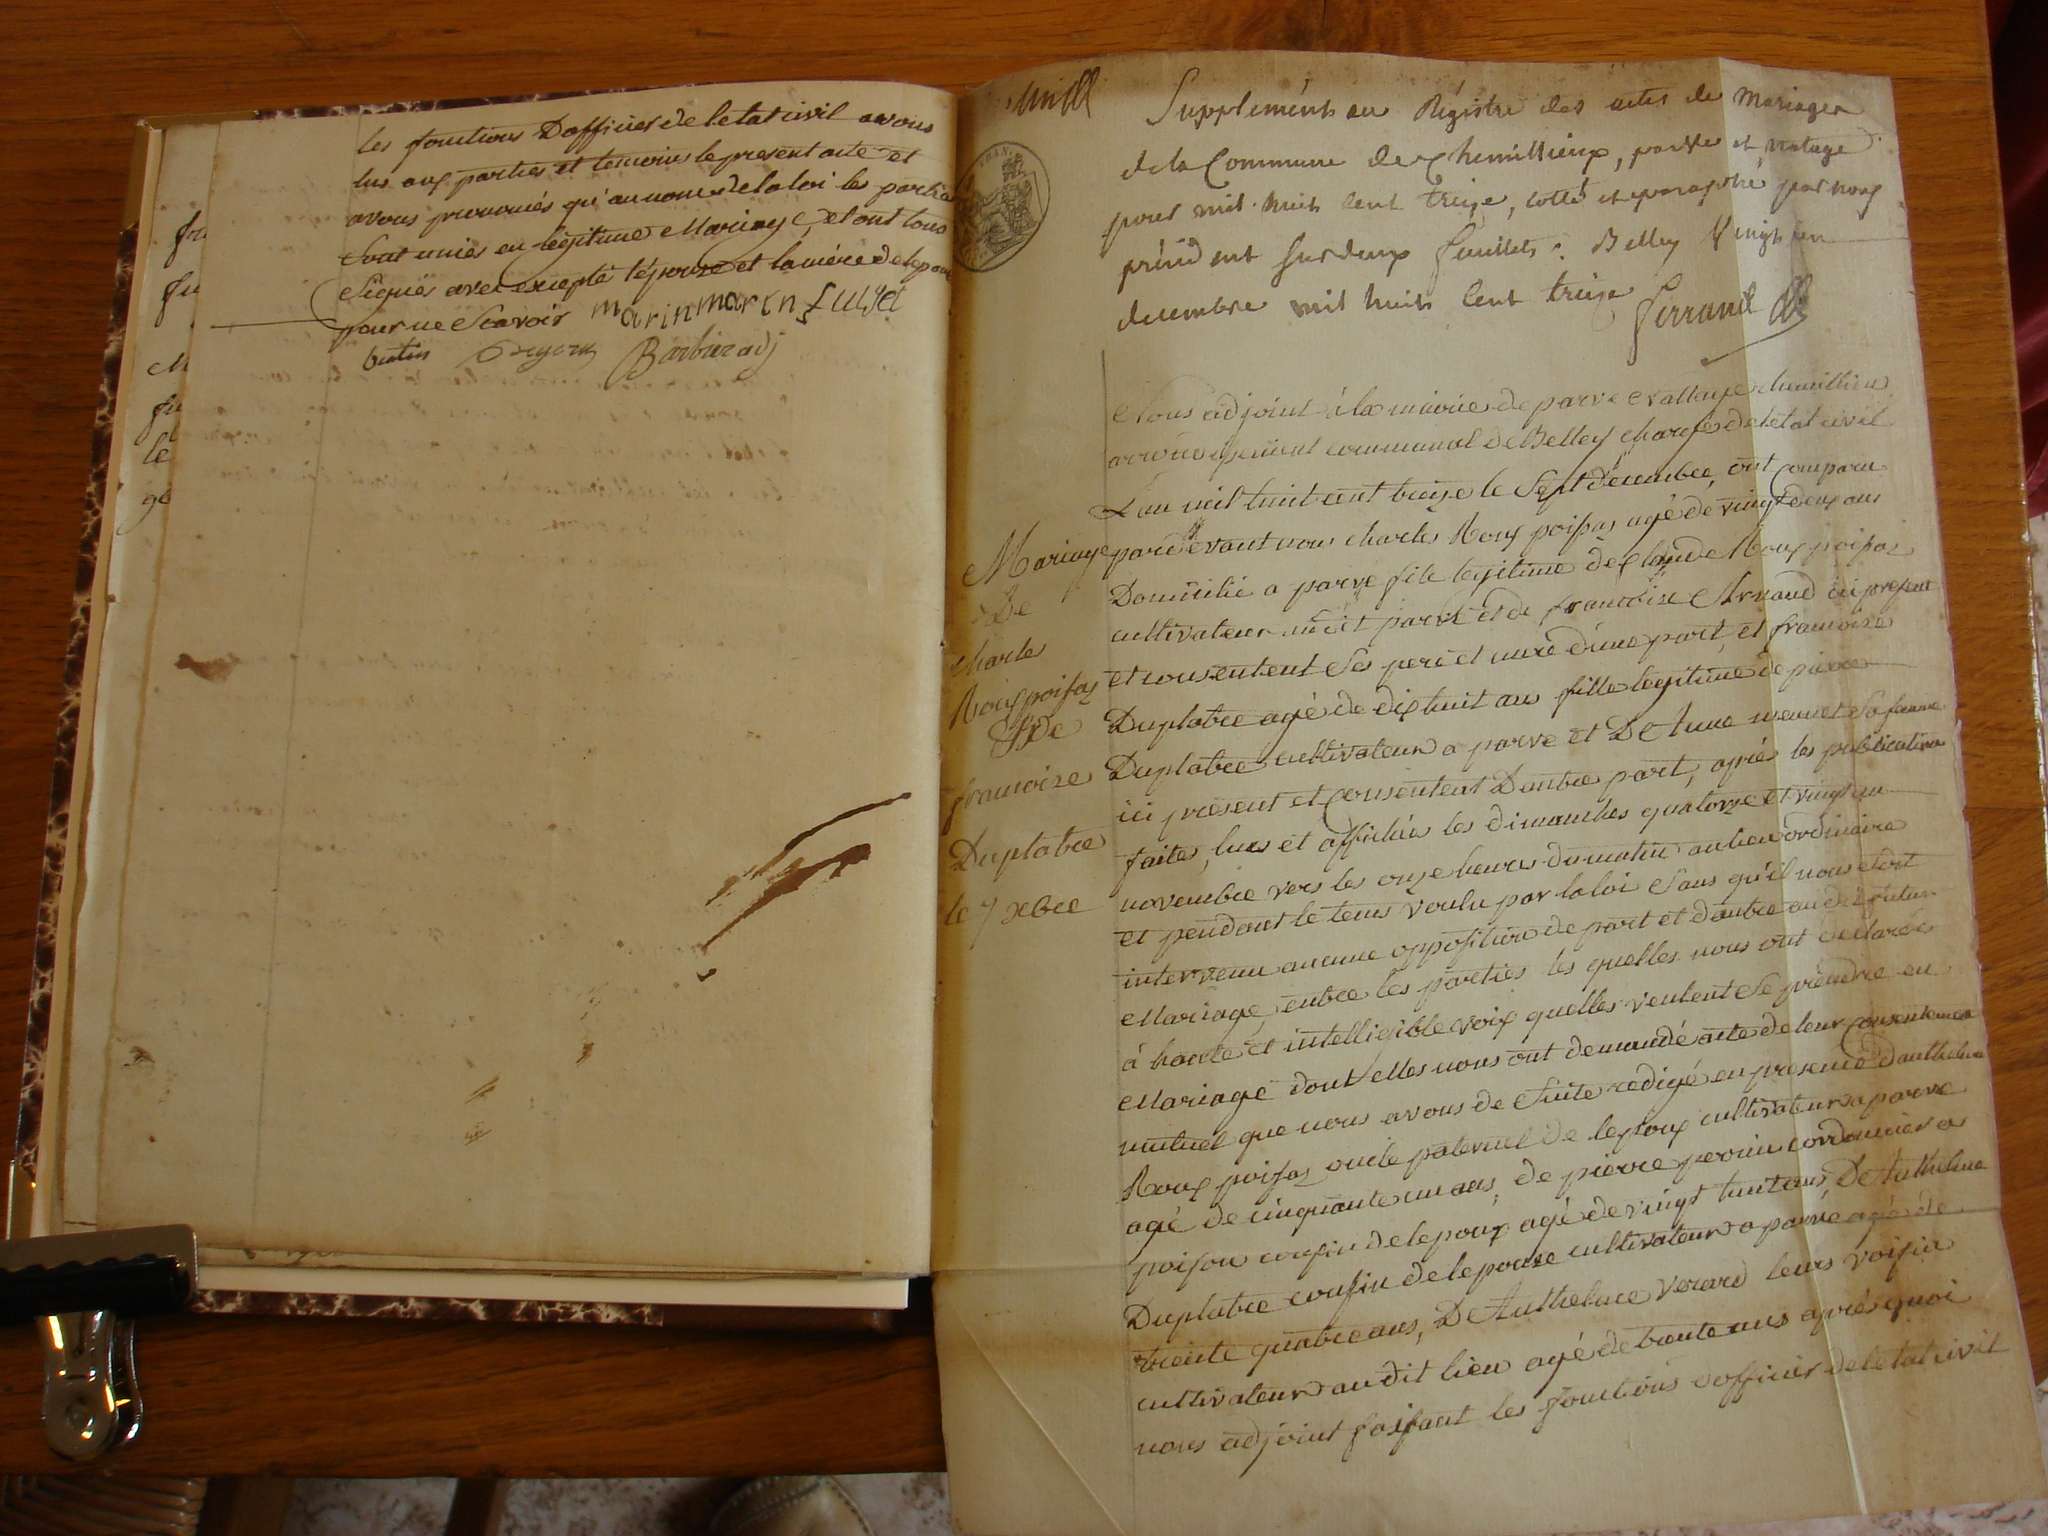 les fonctions Dofficier de letat civil avons
lus aux parties et temoins le present acte et
avons prononcés qu'au nom de la loi les parties
sont unies en legitime Mariage, et ont tous
signés avec excepté l'épouse et la mére de lepoux
pour ne Scavoir marin marin
Barbarady
fu
le
ge
Supplément au Régistre des actes de Mariages
de la Commune de Chemillieux, parves et
pour mil huit cent treize, cotté et paraphé par nous
président sur deux feuillets: Belley Vingt un
decembre mil huit cent treize Ferrand
Nous adjoint à la mairie de parve chemillieu
arrondissement communal de Belley chargé de letat civil
L'an mil huit cent treize le Sept décembre, ont comparu
pardevant nous charles Roux poisas agé de vingt deux ans
Domicilié a parve fils legitime de Claude Roux poisas
cultivateur audit parve et de francoise Arnaud ici présent
et consentent Ses pere et mere d'une part, et francoise
Duplatre agé de dix huit ans fille legitime de pierre
Duplatre cultivateur a parve et D'Anne sa femme
ici present et consentent Dautre part, aprés les publications
faites, lues et affichées les dimanches quatorze et vingt un
novembre vers les onze heures du matin au lieu ordinaire
et pendant le tems voulu par la loi Sans qu'il nous et oit
intervenu aucune opposition de part et d'autre audit futur
Mariage, entre les parties les quelles nous ont déclarés
à haute et intelligible voix quelles veulent Se prendre en
Mariage dont elles nous ont demandé acte de leur consentement
mutuel que nous avons de Suite redigé en presence d'anthelme
Roux poisas oncle paternel de lepoux cultivateur a parve
agé de cinquante un ans, de pierre perrin cordonnier a
poisou cousin de lepoux agé de vingt huit ans, De Anthelme
Duplatre cousin de lepouse cultivateur a parve agé de
trente quatre ans, De Anthelme Verard leurs voisin
cultivateur audit lieu agé de trente ans aprés quoi
nous adjoint faisant les fonctions dofficier de letat civil
Mariage
De
charles
Roux poisas
& De
francoise
Duplatre
le 7 xbre